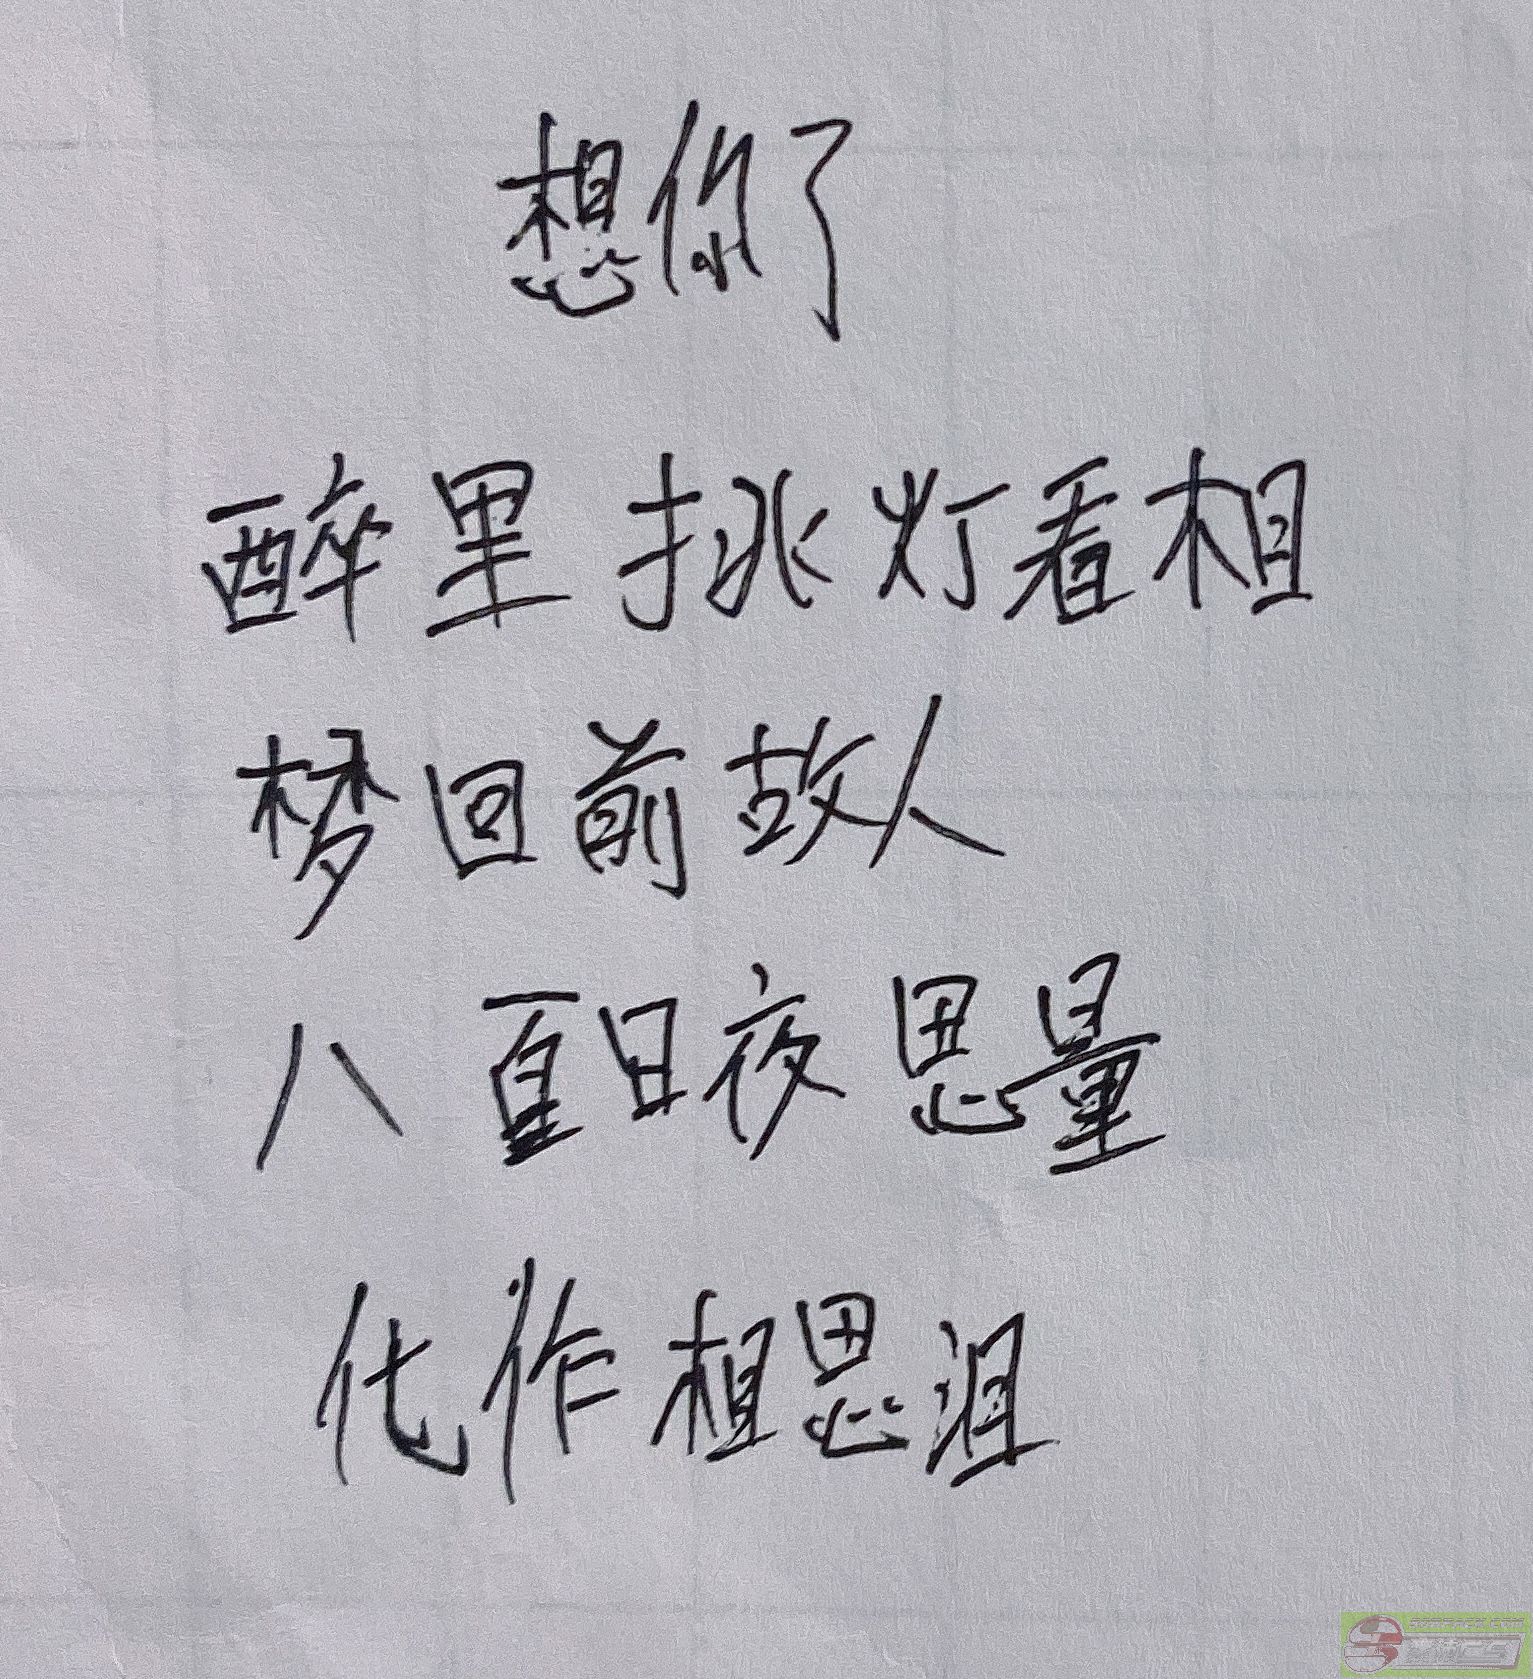 想你了
醉里挑灯看相
梦回前故人
八百日夜思量
化作相思泪